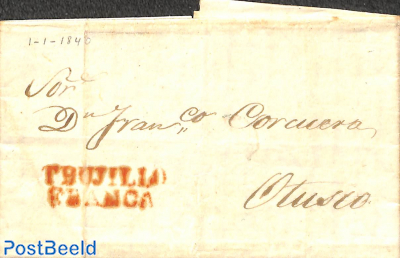 1-1-1840
Sor.
Dn Franco Corcuera
TRUJILLO
Otusco
FRANCA
PostBeeld